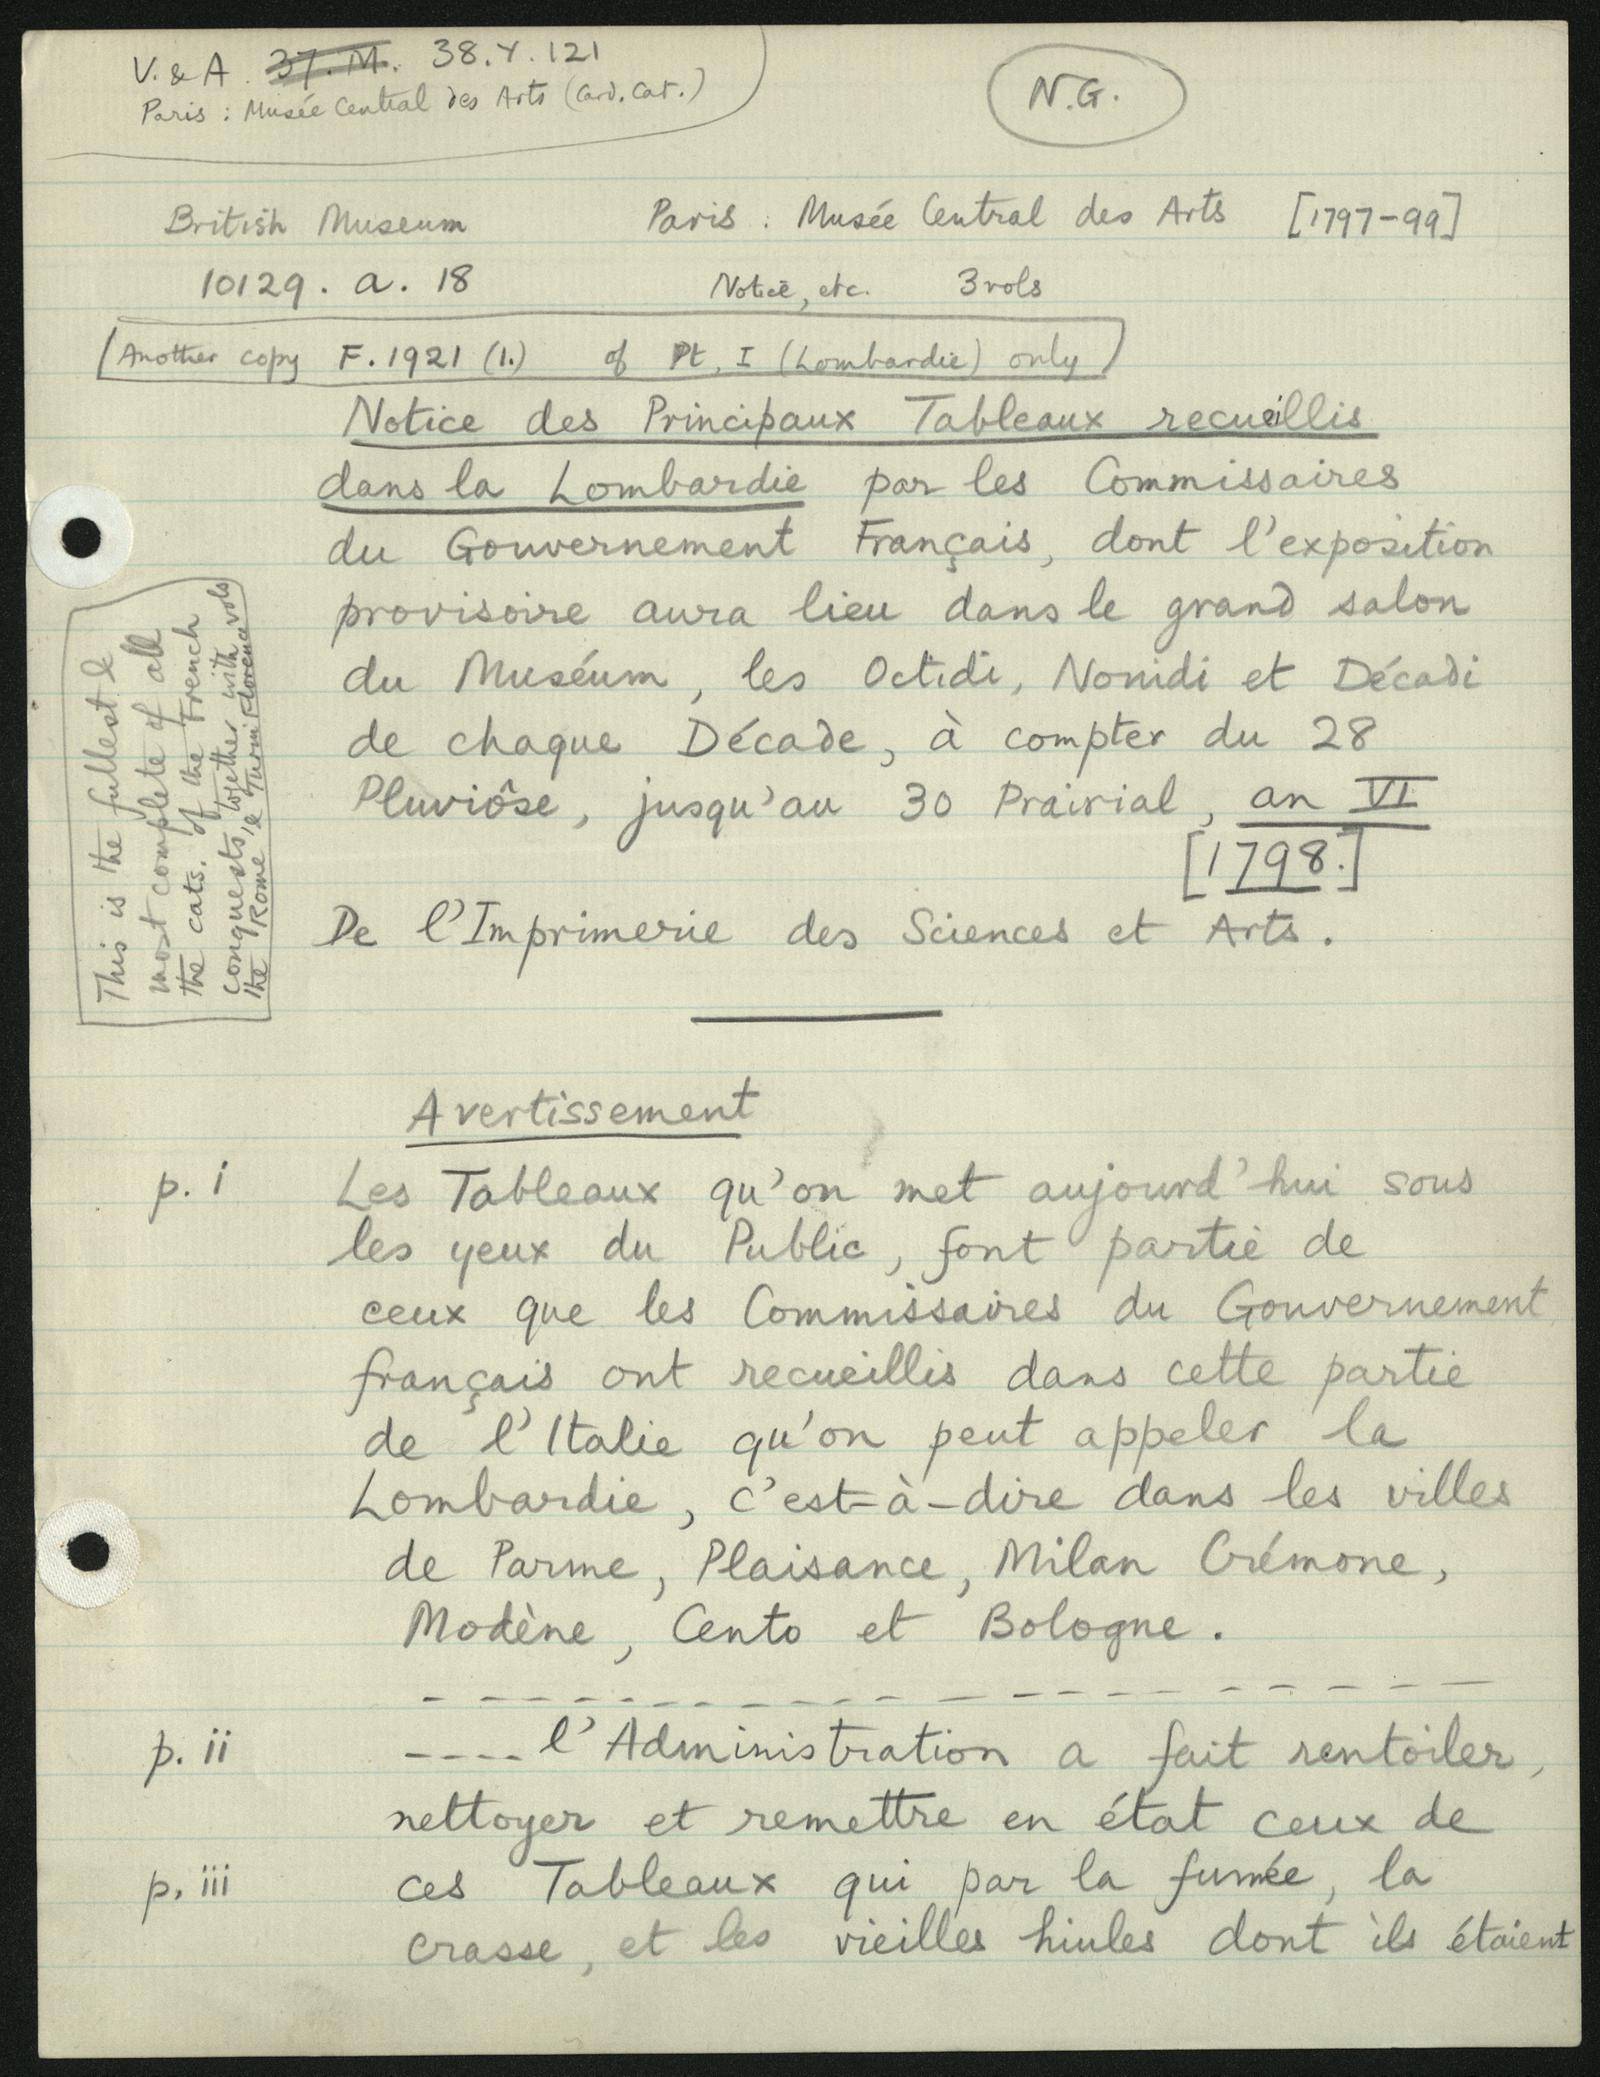 V. & A. 37. M. 38. Y. 121
Paris : Musée Central des Arts (Card. Cat.)
N.G.
British Museum Paris : Musée Central des Arts [1797-99]
10129. a. 18 Notice, etc. 3 vols
[Another copy F. 1921 (1.) of Pt. I (Lombardie) only]
Notice des Principaux Tableaux recueillis
dans la Lombardie par les Commissaires
du Gouvernement Français, dont l'exposition
provisoire aura lieu dans le grand salon
du Muséum, les Octidi, Nonidi et Décadi
de chaque Décade, à compter du 28
Pluviôse, jusqu'au 30 Prairial, an VI
[1798.]
De l'Imprimerie des Sciences et Arts.
This is the fullest &
most complete of all
the cats. of the French
conquests, together with
the Rome, & Turin Florence vols
Avertissement
p. i Les Tableaux qu'on met aujourd'hui sous
les yeux du Public, font partie de
ceux que les Commissaires du Gouvernement
français ont recueillis dans cette partie
de l'Italie qu'on peut appeler la
Lombardie, c'est-à-dire dans les villes
de Parme, Plaisance, Milan Crémone,
Modène, Cento et Bologne.
p. ii ---- l'Administration a fait rentoiler,
nettoyer et remettre en état ceux de
p. iii ces Tableaux qui par la fumée, la
crasse, et les vieilles hiules dont ils étaient